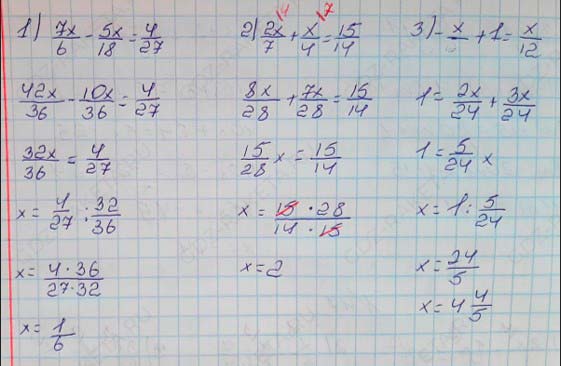 1) 7x/6 - 5x/18 = 4/27
42x/36 - 10x/36 = 4/27
32x/36 = 4/27
x = 4/27 : 32/36
x = 4·36/27·32
x = 1/6
2) 2x/7 + x/4 = 15/14
8x/28 + 7x/28 = 15/14
15/28 x = 15/14
x = 15·28/14·15
x = 2
3) - x/ + 1 = x/12
1 = 2x/24 + 3x/24
1 = 5/24 x
x = 1 : 5/24
x = 24/5
x = 4 4/5